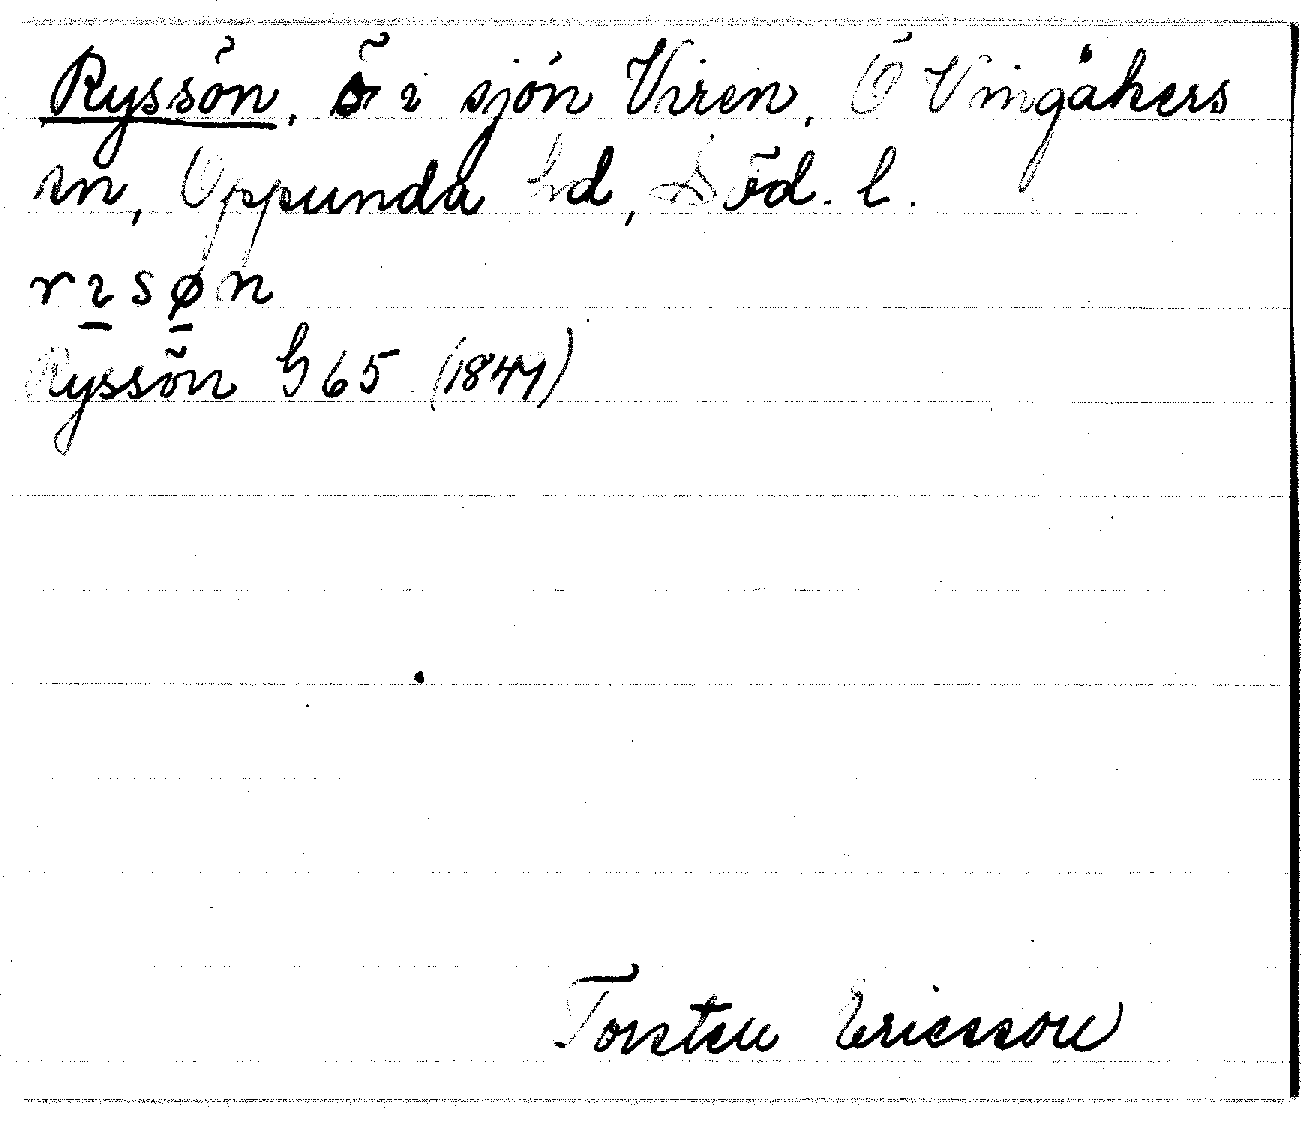 Ryssön, ö i sjön Viren, Ö Vingåkers
sn, Oppunda hd, Söd. l.
rısøn
Ryssön G 65 (1847)
Torsten Ericsson